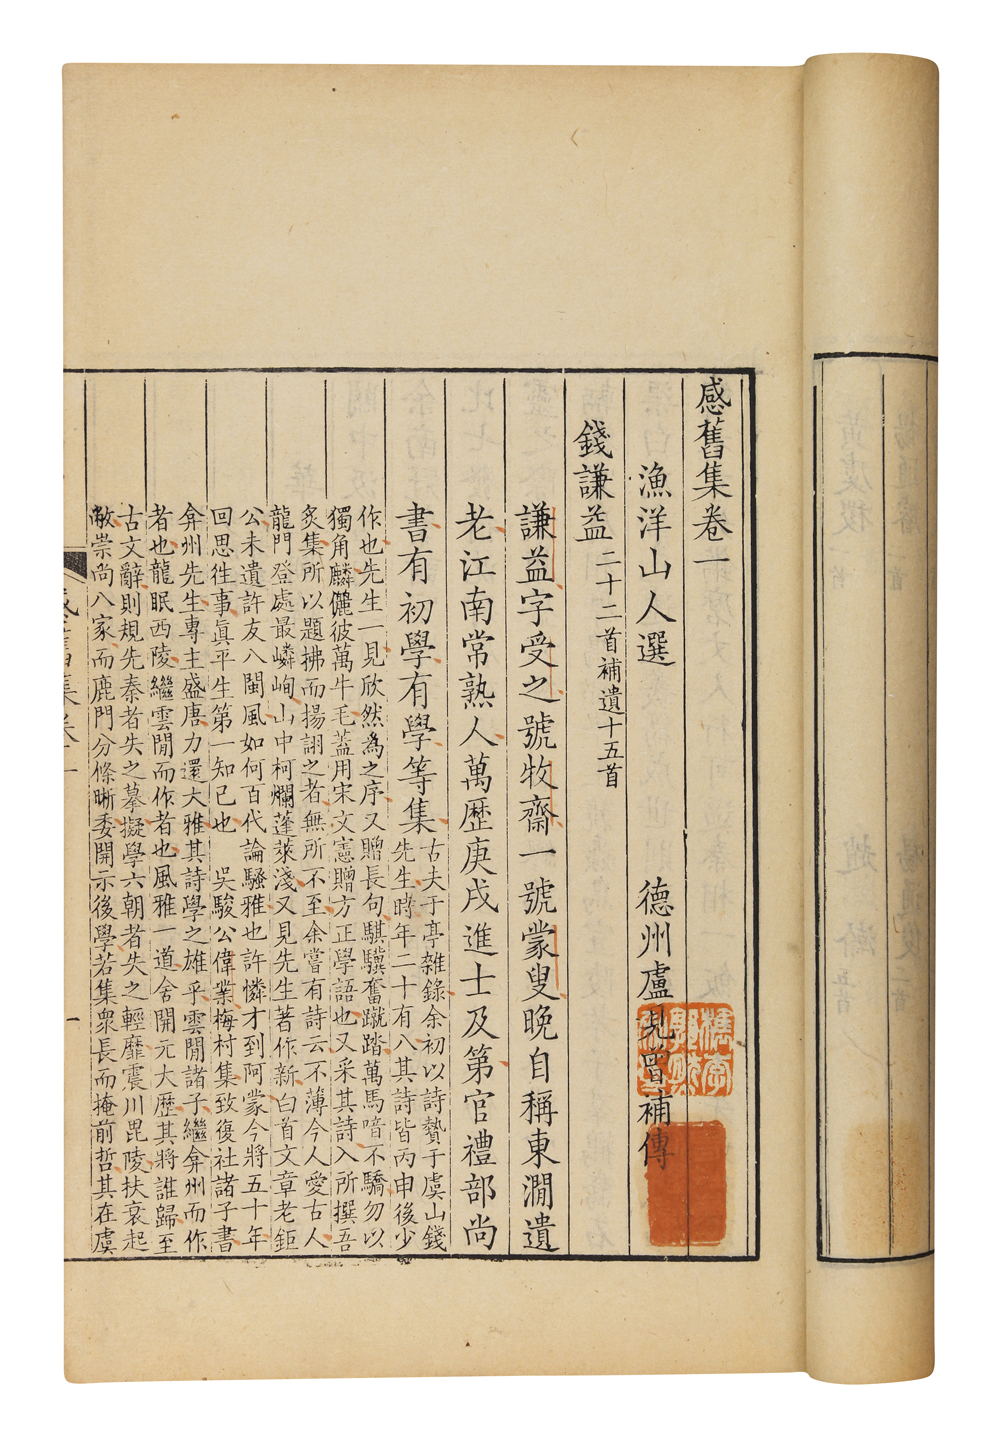 感舊集卷一
漁洋山人選 德州盧見曾補傳
錢謙益 二十二首補遺十五首
謙益字受之號牧齋一號蒙叟晚自稱東澗遺
老江南常熟人萬歷庚戌進士及第官禮部尚
書有初學有學等集
古夫于亭雜錄余初以詩贄于虞山錢
先生時年二十有八其詩皆丙申後少
作也先生一見欣然為之序又贈長句騏驥奮蹴踏萬馬喑不驕勿以
獨角麟儷彼萬牛毛蓋用宋文憲贈方正學語也又采其詩入所撰吾
炙集所以題拂而揚詡之者無所不至余嘗有詩云不薄今人愛古人
龍門登處最嶙峋山中柯爛蓬萊淺又見先生著作新白首文章老鉅
公未遺許友八閩風如何百代論騷雅也許憐才到阿蒙今將五十年
回思往事真平生第一知己也 吳駿公偉業梅村集致復社諸子書
弇州先生專主盛唐力還大雅其詩學之雄乎雲間諸子繼弇州而作
者也龍眠西陵繼雲間而作者也風雅一道舍開元大歷其將誰歸至
古文辭則規先秦者失之摹擬學六朝者失之輕靡震川毘陵扶衰起
敝崇尚八家而鹿門分條晰委開示後學若集衆長而掩前哲其在虞
感舊集卷一
一
檇李